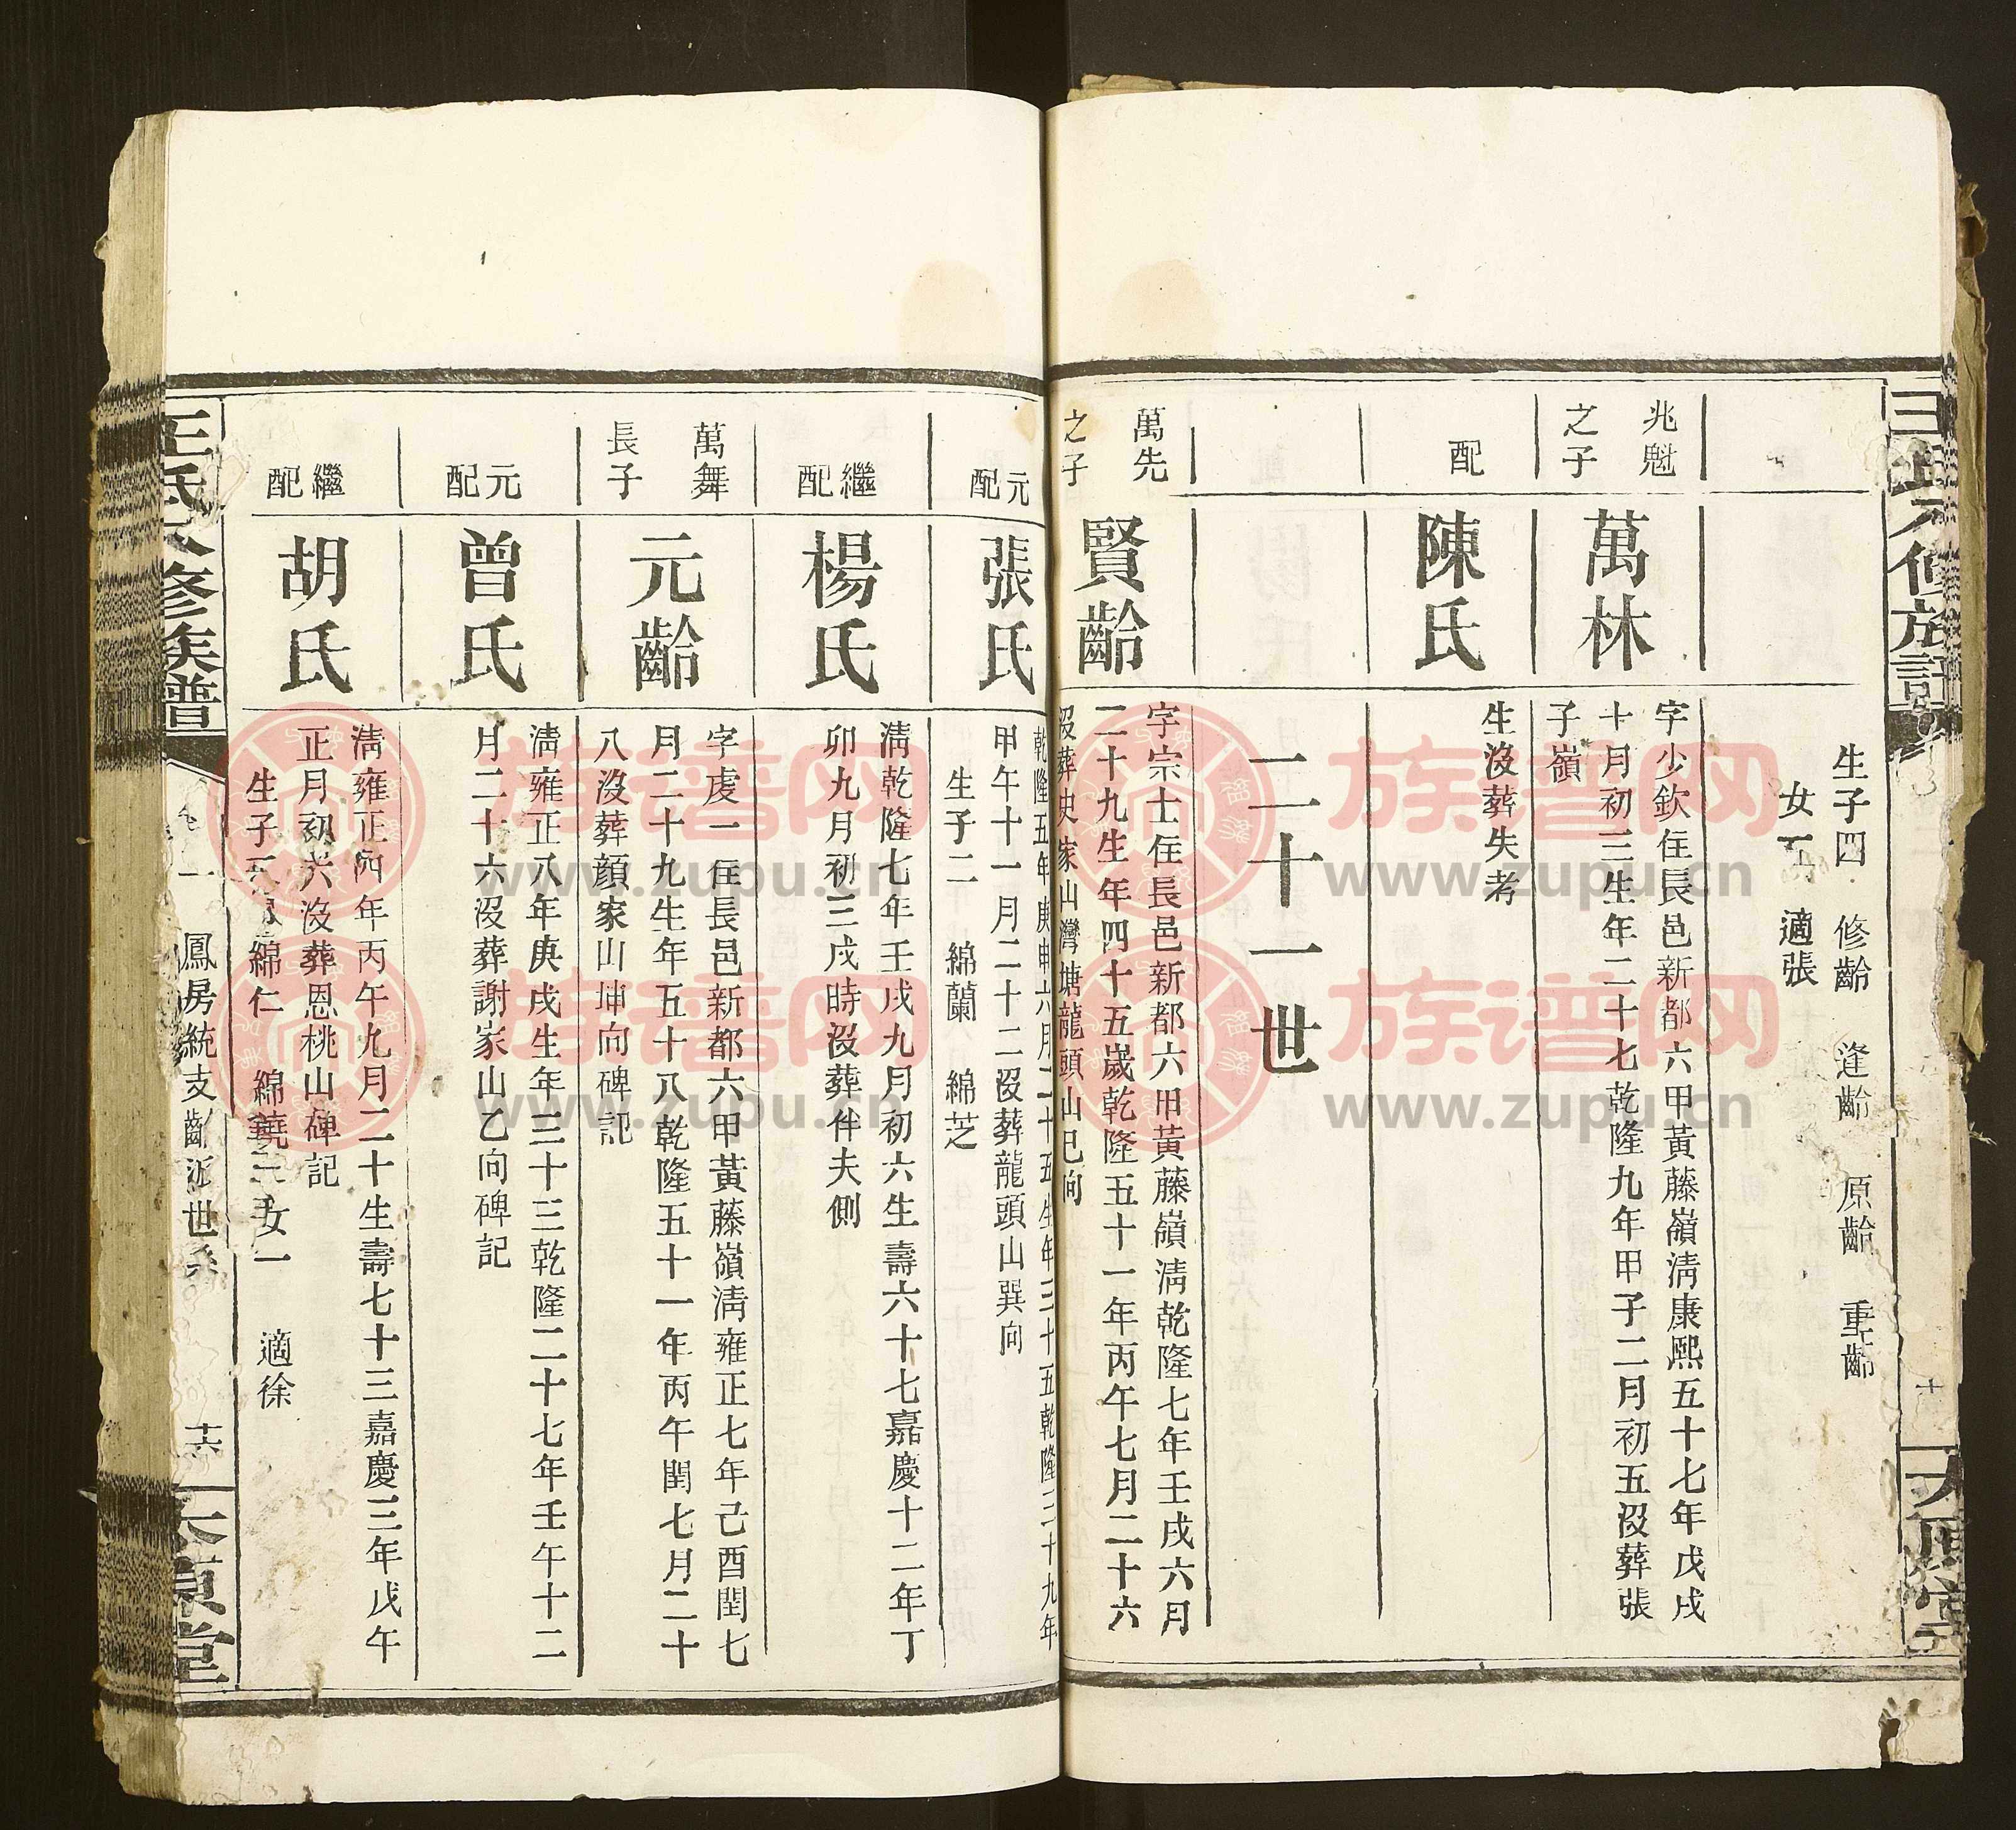 生子四 修齡 逢齡 原齡 重齡
女一 適張
兆魁
之子
萬林
字少欽住長邑新都六甲黃藤嶺清康熙五十七年戊戌
十月初三生年二十七乾隆九年甲子二月初五沒葬張
子嶺
配
陳氏
生沒葬失考
二十一世
萬先
之子
賢齡
字宗士住長邑新都六甲黃藤嶺清乾隆七年壬戌六月
二十九生年四十五歲乾隆五十一年丙午七月二十六
沒葬史家山灣塘龍頭山巳向
元配
張氏
乾隆五年庚申六月二十五生年三十五乾隆三十九年
甲午十一月二十二沒葬龍頭山巽向
生子二 綿蘭 綿芝
繼配
楊氏
清乾隆七年壬戌九月初六生壽六十七嘉慶十二年丁
卯九月初三戌時沒葬伴夫側
萬舞
長子
元齡
字虔一住長邑新都六甲黃藤嶺清雍正七年己酉閏七
月二十九生年五十八乾隆五十一年丙午閏七月二十
八沒葬顔家山坤向碑記
元配
曾氏
清雍正八年庚戌生年三十三乾隆二十七年壬午十二
月二十六沒葬謝家山乙向碑記
繼配
胡氏
清雍正四年丙午九月二十生壽七十三嘉慶三年戊午
正月初六沒葬恩桃山碑記
生子 綿仁 綿 女一 適徐
王氏 修族譜
卷一 鳳房統支齡派世系
十六
太原堂
族谱网
www.zupu.cn
族谱网
www.zupu.cn
族谱网
www.zupu.cn
族谱网
www.zupu.cn